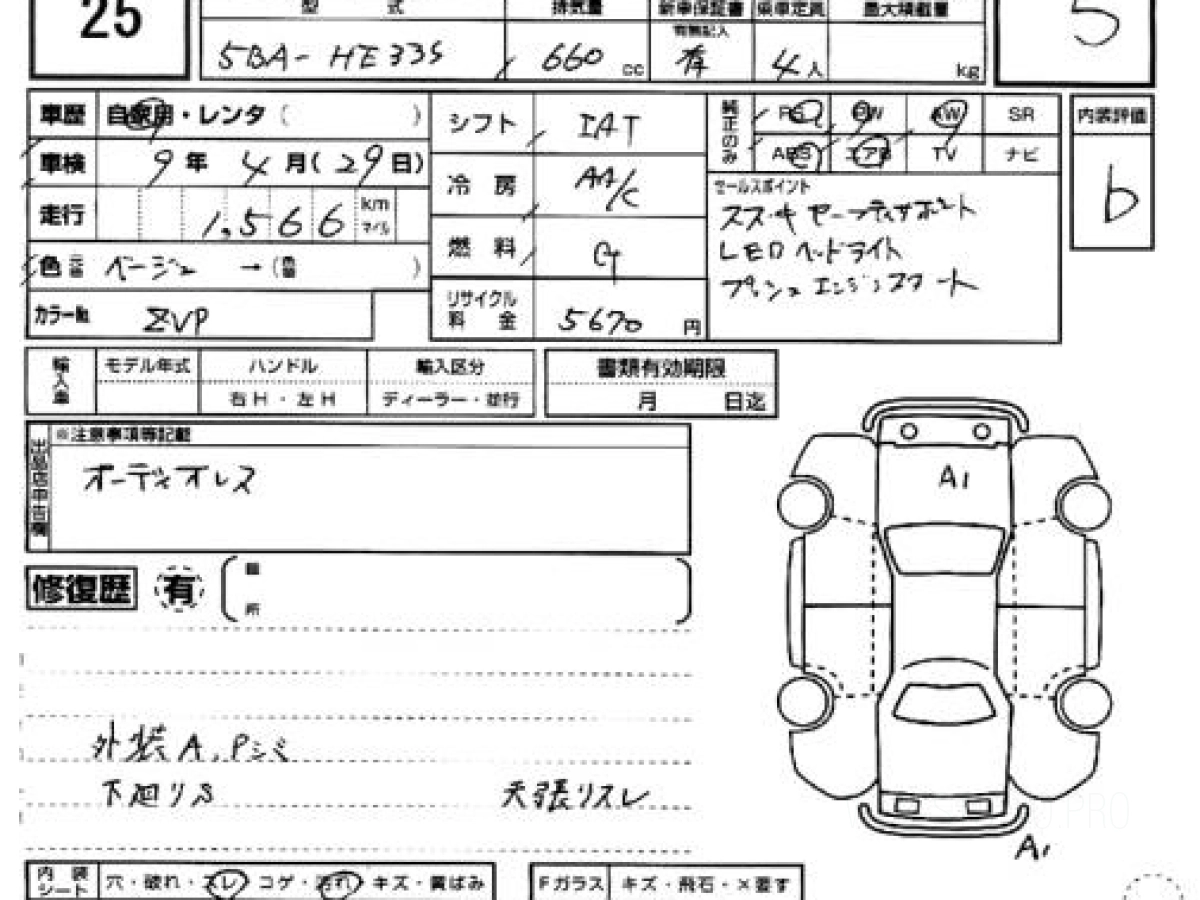 25
型 式 排気量 新車保証書 乗車定員 最大積載量
有無記入
5BA-HE33S 660 cc 有 4人 kg
5
車歴 自家用・レンタ( )
車検 9年 4月(29日)
走行 1,566 km マイル
色 元色 ベージュ →(色替 )
カラーNo. ZVP
シフト IAT
冷房 AA/C
燃料 G
リサイクル料金 5670 円
純正のみ PS PW AW SR
ABS エアB TV ナビ
セールスポイント
スズキセーフティサポート
LEDヘッドライト
プッシュエンジンスタート
内装評価
b
輸入車 モデル年式 ハンドル 輸入区分
右H・左H ディーラー・並行
書類有効期限
月 日迄
出品店申告欄 ※注意事項等記載
オーディオレス
修復歴 有 箇所
外装A,Pシミ
下廻りS 天張リスレ
A1
A1
内装シート 穴・破れ・スレ・コゲ・汚れ・キズ・黄ばみ
Fガラス キズ・飛石・×要す
.PRO